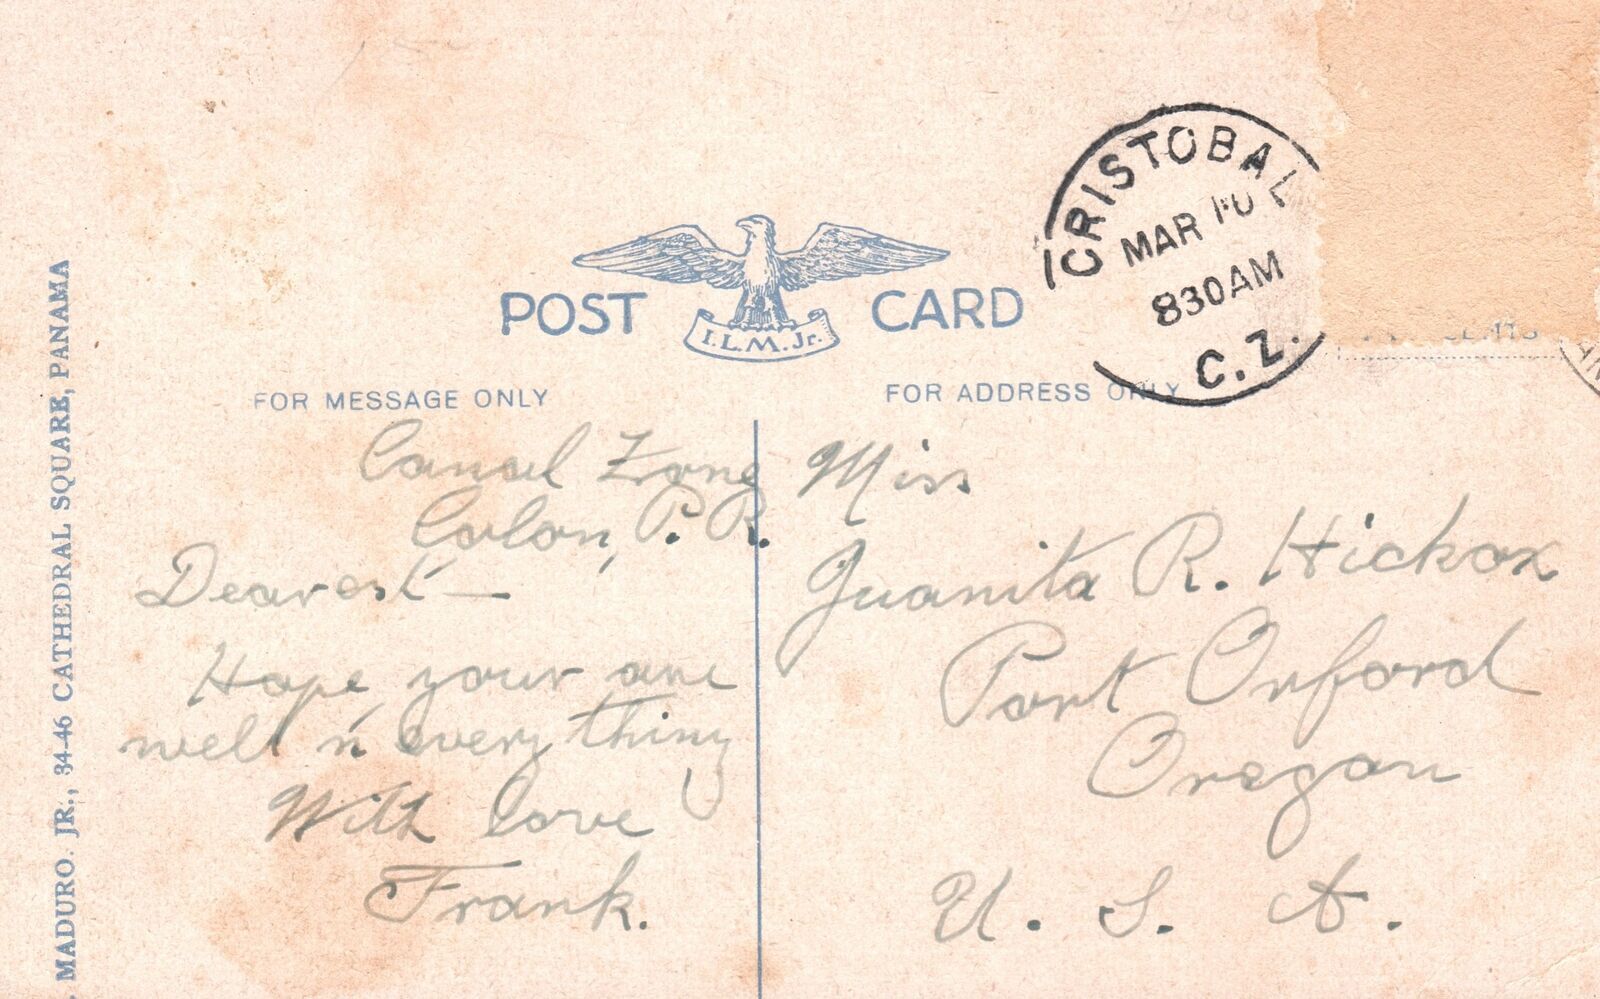 CRISTOBAL
MAR 10
830AM
C. Z.
POST CARD
I.L.M. Jr.
FOR MESSAGE ONLY
FOR ADDRESS ONLY
MADURO. JR., 34-46 CATHEDRAL SQUARE, PANAMA
Canal Zone
Colon, P. R.
Dearest —
Hope your are
well n' every thing
With love
Frank.
Miss
Juanita R. Hickox
Port Orford
Oregon
U. S. A.